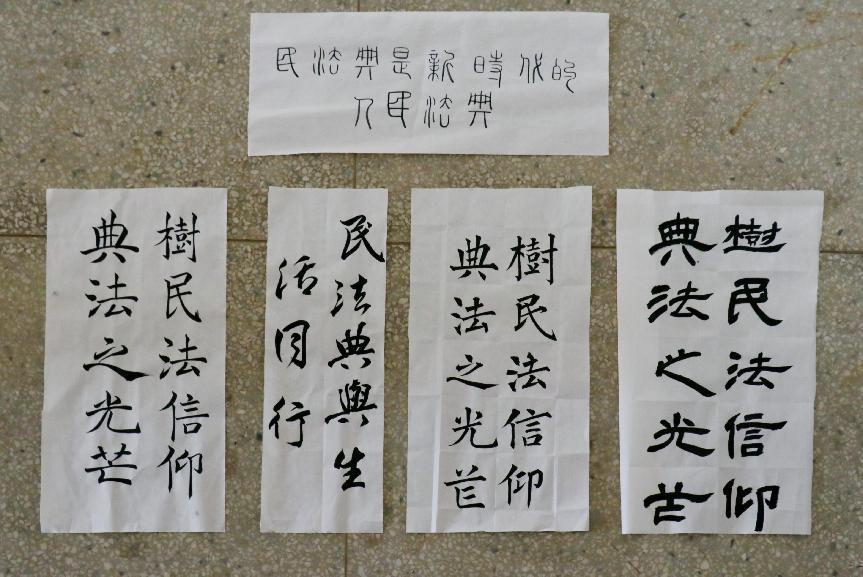 民法典是新時代的
人民法典
樹民法信仰
典法之光芒
民法典與生
活同行
樹民法信仰
典法之光芒
樹民法信仰
典法之光芒